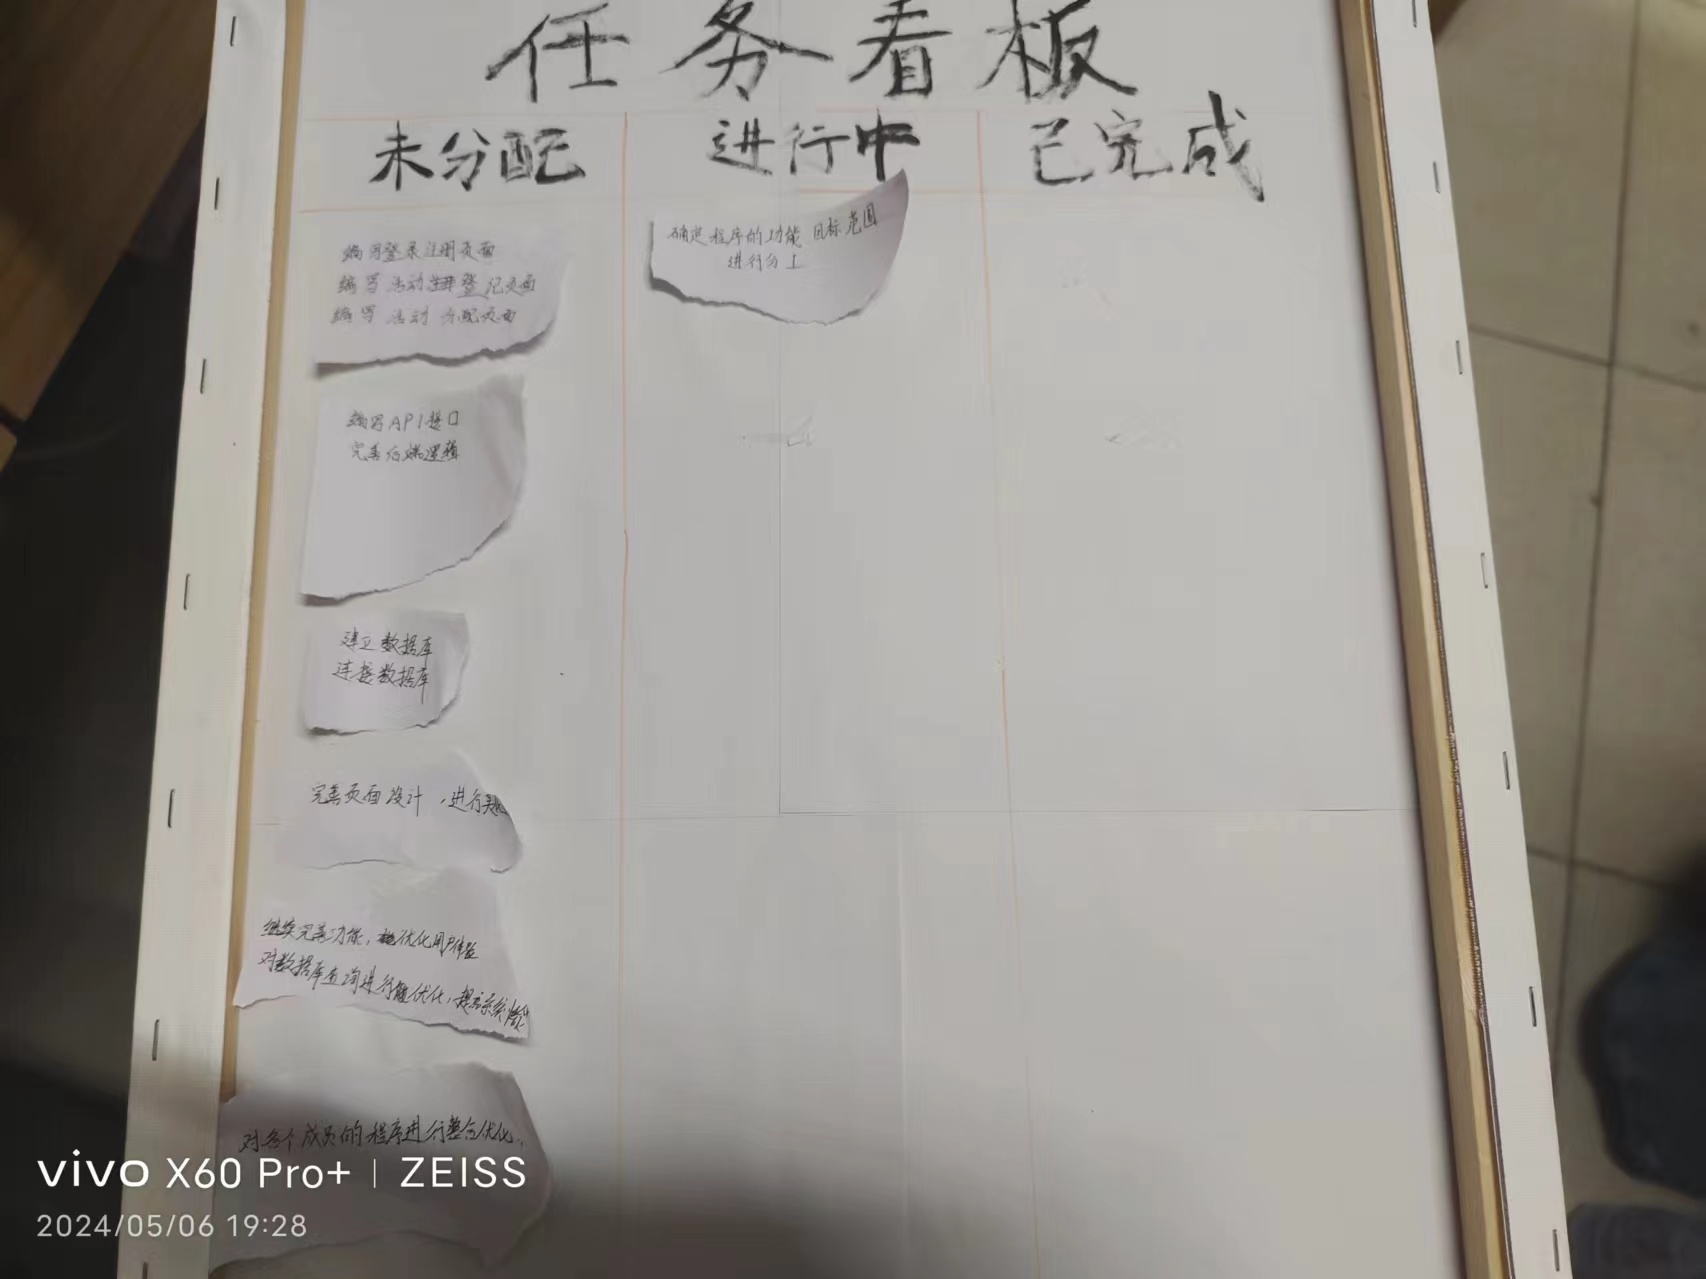 任务看板
未分配
进行中
已完成
编写登录注册页面
编写 活动 登记页面
编写 活动 分配页面
编写API接口
完善后端逻辑
建立数据库
连接数据库
完善页面设计，进行美化
继续完善功能，优化用户体验
对数据库查询进行性能优化，提高系统性能
对各个成员的程序进行整合优化
确定程序的功能 目标 范围
进行分工
vivo X60 Pro+ | ZEISS
2024/05/06 19:28